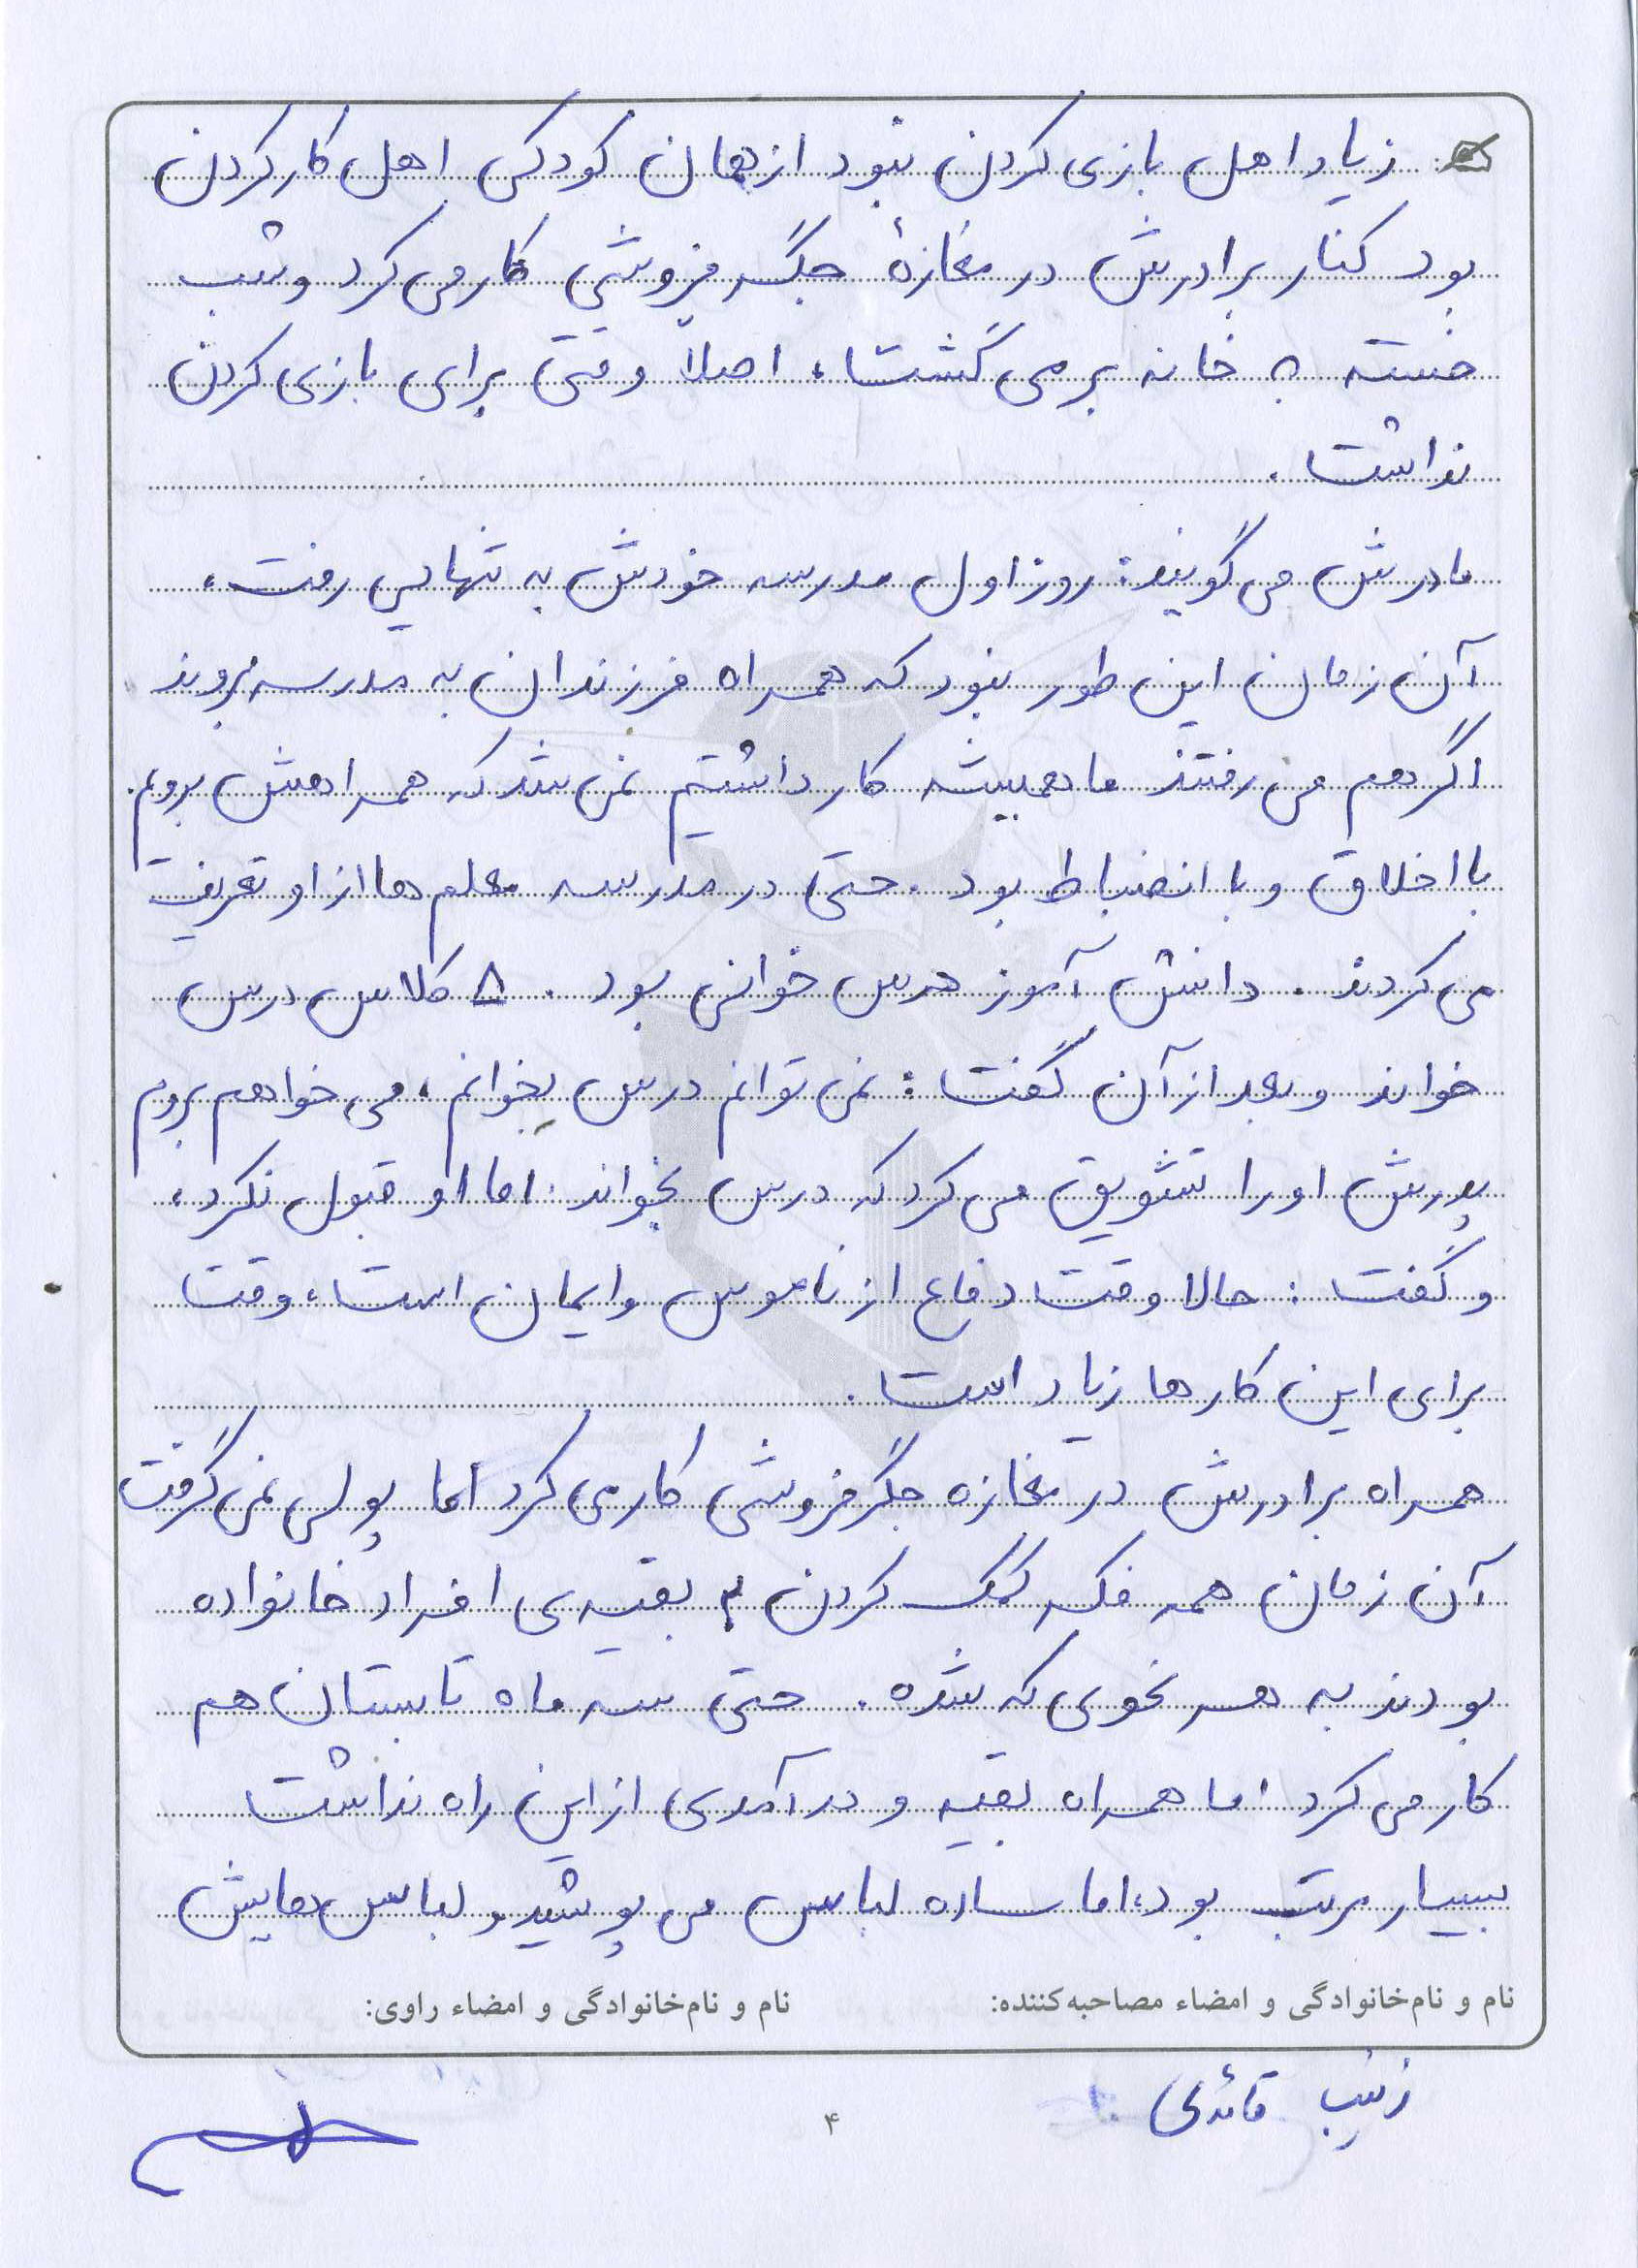 زیاد اهل بازی کردن نبود از همان کودکی اهل کار کردن
بود کنار برادرش در مغازهٔ جگر فروشی کار می کرد و شب
خسته به خانه بر می گشت، اصلاً وقتی برای بازی کردن
نداشت.
مادرش می گویند: روز اول مدرسه خودش به تنهایی رفت،
آن زمان این طور نبود که همراه فرزندان به مدرسه بروند
اگر هم می رفتند ما همیشه کار داشتیم نمی شد که همراهش برویم.
با اخلاق و با انضباط بود. حتی در مدرسه معلم ها از او تعریف
می کردند. دانش آموز درس خوانی بود. ۵ کلاس درس
خواند و بعد از آن گفت: نمی توانم درس بخوانم، می خواهم بروم
پدرش او را تشویق می کرد که درس بخواند. اما او قبول نکرد،
و گفت: حالا وقت دفاع از ناموس و ایمان است، وقت
برای این کار ها زیاد است.
همراه برادرش در مغازه جگر فروشی کار می کرد اما پولی نمی گرفت
آن زمان همه فکر کمک کردن به بقیه ی افراد خانواده
بودند به هر نحوی که شده. حتی سه ماه تابستان هم
کار می کرد اما همراه بقیه و در آمدی از این راه نداشت
بسیار مرتب بود، اما ساده لباس می پوشید و لباس هایش
نام و نام‌خانوادگی و امضاء مصاحبه‌کننده: نام و نام‌خانوادگی و امضاء راوی:
زینب قائدی
۴